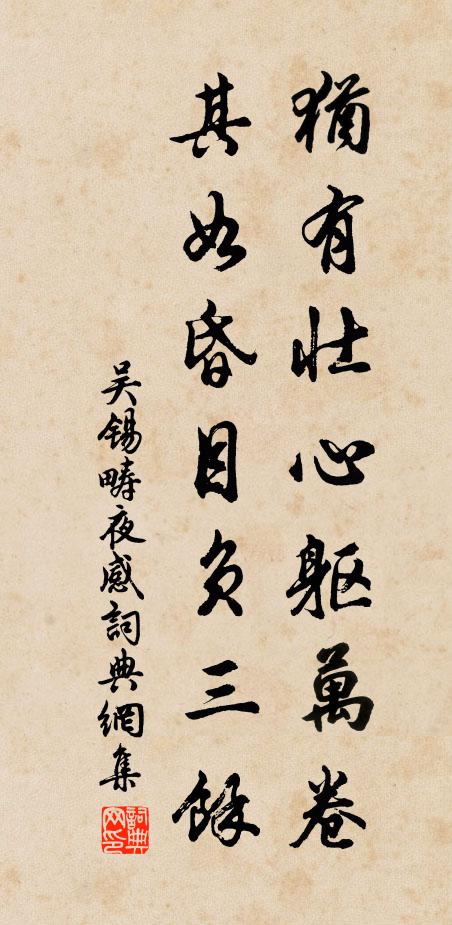 猶有壯心軀萬卷
其如昏目負三餘
吳錫疇夜感詞典網集
詞典网印